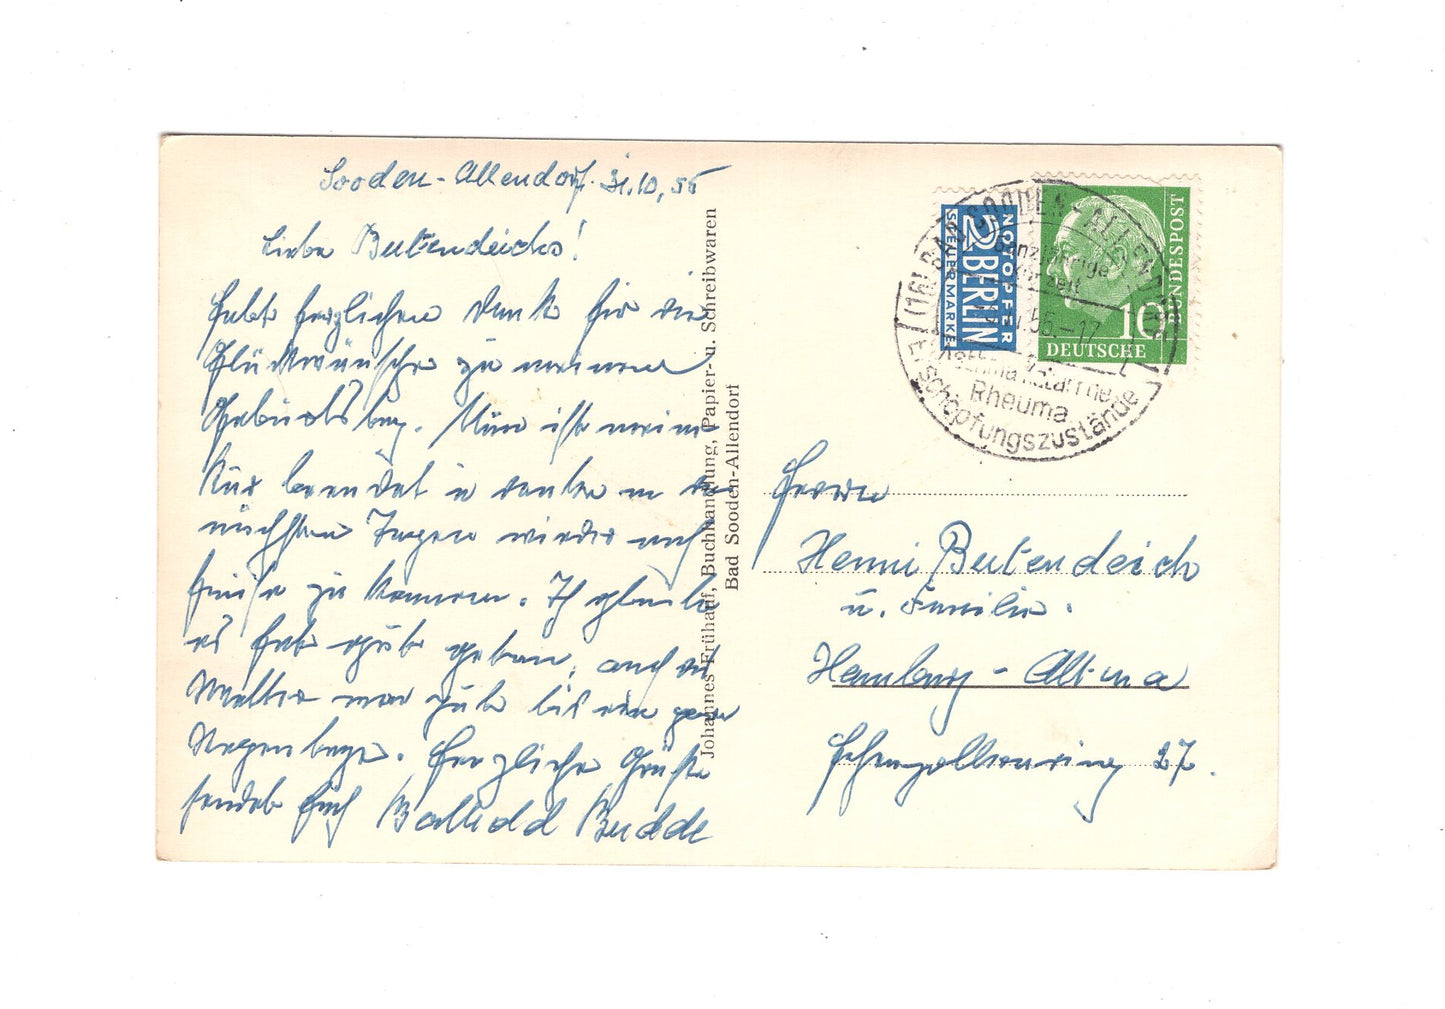 Sooden-Allendorf. 31.10.55
Liebe Butendeichs!
Habt herzlichen Dank für die
Glückwünsche zu meinem
Geburtstag. Nun ist meine
Kur beendet u. in den
nächsten Tagen wieder nach
Hause zu kommen. Ich glaube
es hat gut getan, auch das
Wetter war gut bis ein paar
Regentage. Herzliche Grüße
sendet Euch Budde
Johannes Frühauf, Buchhandlung, Papier- u. Schreibwaren
Bad Sooden-Allendorf
NOTOPFER
2 BERLIN
STEUERMARKE
10
DEUTSCHE
BUNDESPOST
(16) BAD SOODEN-ALLENDORF
Ganzjährige
Kurzeit
55-17
Asthma Katarrhe
Rheuma
Erschöpfungszustände
Henni Butendeich
u. Familie.
Hamburg-Altona
Hohenzollernring 27.